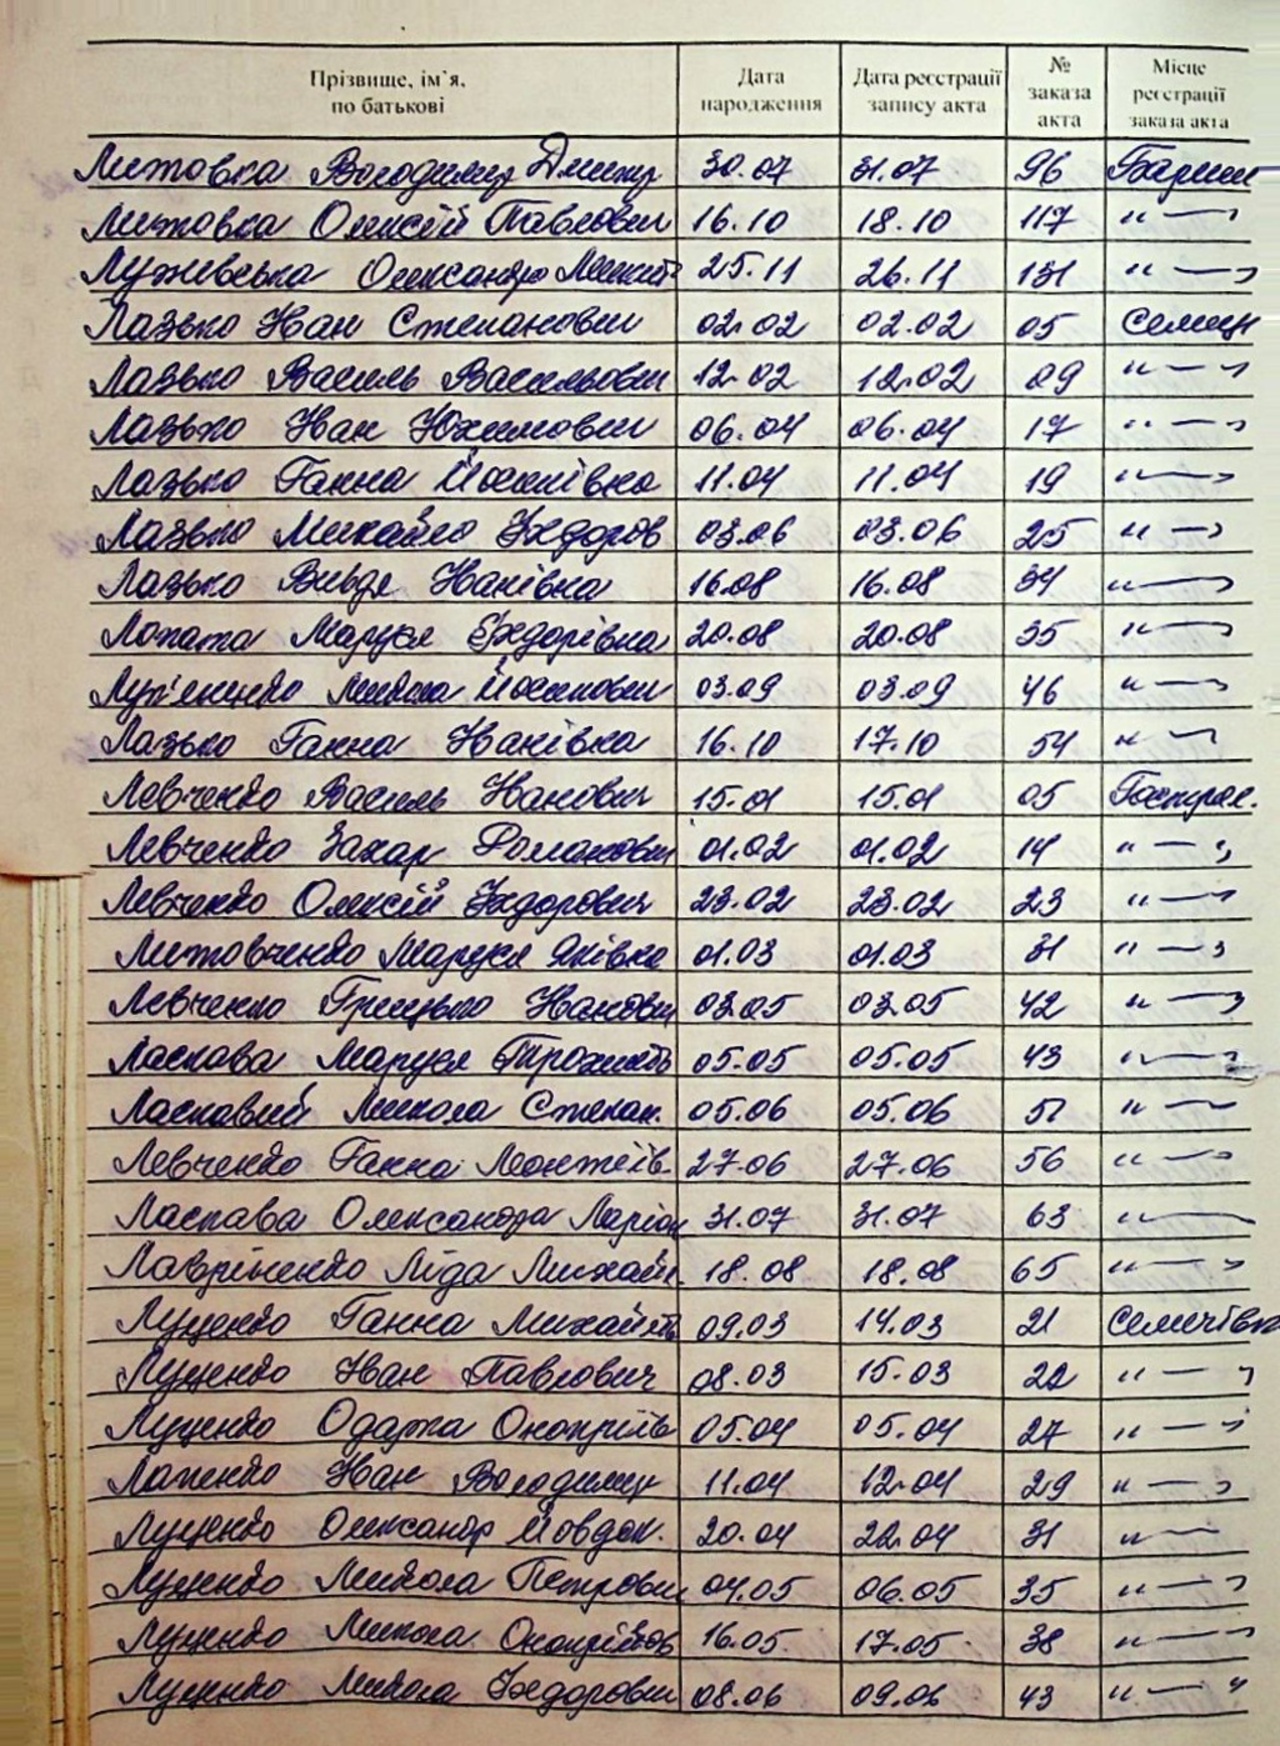 Прізвище, ім`я, по батькові Дата народження Дата реєстрації запису акта № заказа акта Місце реєстрації заказа акта
Литовка Володимир Дмитр 30.07 31.07 96
Литовка Олексій Павлович 16.10 18.10 117 " — "
Лужевська Олександра Микит 25.11 26.11 131 " — "
Лазько Іван Степанович 02.02 02.02 05
Лазько Василь Васильович 12.02 12.02 09 " — "
Лазько Іван Юхимович 06.04 06.04 17 " — "
Лазько Ганна Йосипівна 11.04 11.04 19 " — "
Лазько Михайло Федоров 03.06 03.06 25 " — "
Лазько Вивдя Іванівна 16.08 16.08 34 " — "
Лопата Маруся Федорівна 20.08 20.08 35 " — "
Луп'яненко Микола Йосипович 03.09 03.09 46 " — "
Лазько Ганна Іванівна 16.10 17.10 54 " — "
Левченко Василь Іванович 15.01 15.01 05
Левченко Захар Романович 01.02 01.02 14 " — "
Левченко Олексій Федорович 23.02 23.02 23 " — "
Литовченко Маруся Яківна 01.03 01.03 31 " — "
Левченко Грицько Іванович 03.05 03.05 42 " — "
Ласкава Маруся 05.05 05.05 43 " — "
Ласкавий Микола Степан. 05.06 05.06 51 " — "
Левченко Ганна 27.06 27.06 56 " — "
Ласкава Олександра Ларіон 31.07 31.07 63 " — "
Лавріненко Ліда Михайл. 18.08 18.08 65 " — "
Луценко Ганна Михайлів 09.03 14.03 21 Семенівка
Луценко Іван Павлович 08.03 15.03 22 " — "
Луценко Одарка Онопріїв 05.04 05.04 27 " — "
Лапенко Іван Володимир 11.04 12.04 29 " — "
Луценко Олександр Йовдок. 20.04 22.04 31 " —
Луценко Микола Петрович 04.05 06.05 35 " — "
Луценко Микола Онопрійов 16.05. 17.05. 38 " — "
Луценко Микола Федорович 08.06 09.06 43 " — "